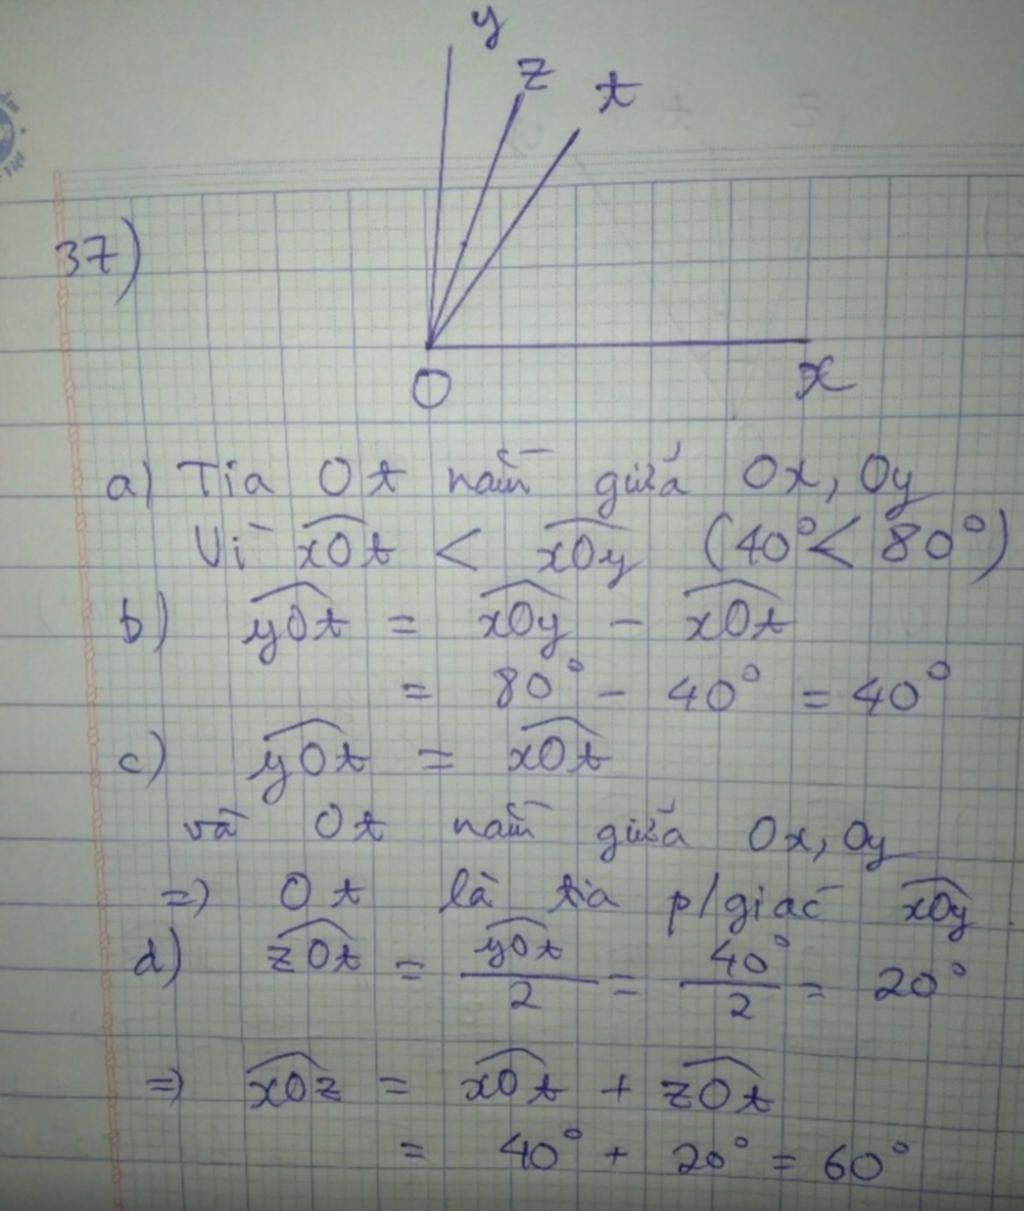 y
z
t
37)
O
x
a) Tia Ot nằm giữa Ox, Oy
Vì xOt < xOy (40° < 80°)
b) yOt = xOy - xOt
= 80° - 40° = 40°
c) yOt = xOt
và Ot nằm giữa Ox, Oy
=) Ot là tia p/giác xOy.
d) zOt = yOt/2 = 40°/2 = 20°
=) xOz = xOt + zOt
= 40° + 20° = 60°